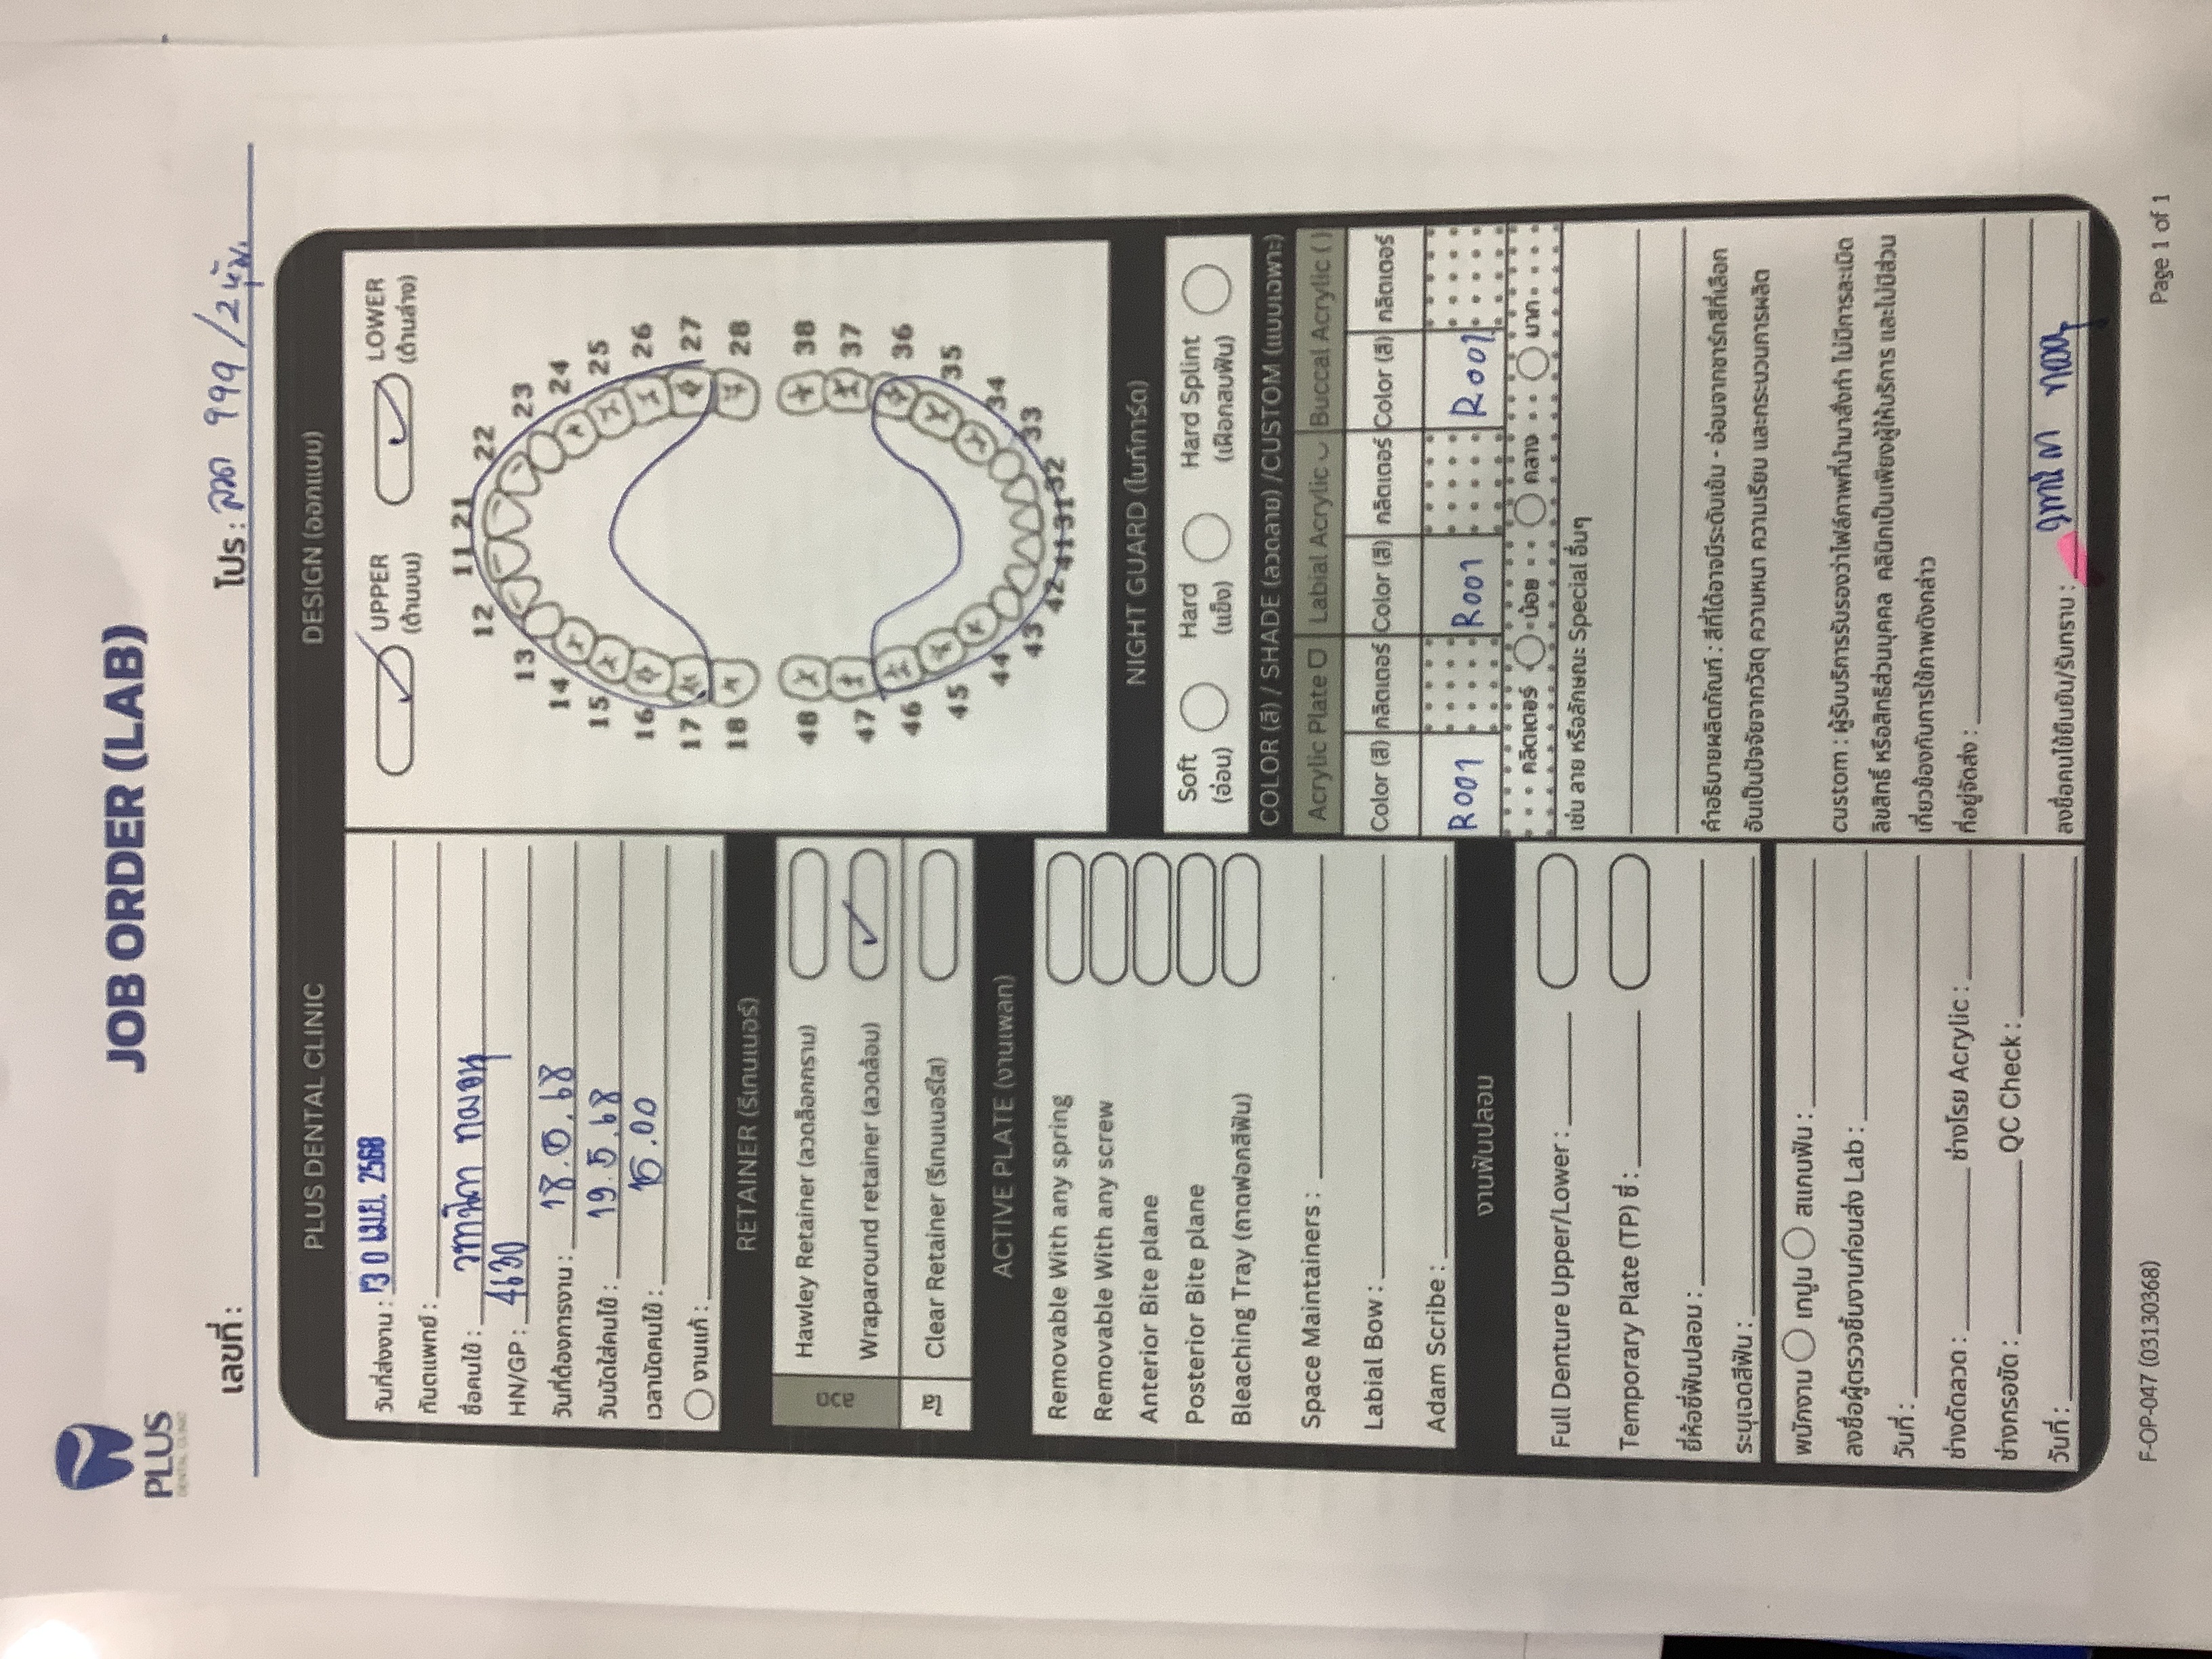 PLUS
DENTAL CLINIC
JOB ORDER (LAB)
เลขที่ :
โปร : ลวด 999 /2 หุ้ม.
PLUS DENTAL CLINIC
วันที่ส่งงาน : 30 เม.ย. 2568
ทันตแพทย์ :
ชื่อคนไข้ :
HN/GP : 4630
วันที่ต้องการงาน : 18.5.68
วันนัดใส่คนไข้ : 19.5.68
เวลานัดคนไข้ : 15.00
งานแก้ :
RETAINER (รีเทนเนอร์)
ลวด
Hawley Retainer (ลวดล็อกกราม)
Wraparound retainer (ลวดล้อม)
ใส
Clear Retainer (รีเทนเนอร์ใส)
ACTIVE PLATE (งานเพลท)
Removable With any spring
Removable With any screw
Anterior Bite plane
Posterior Bite plane
Bleaching Tray (ถาดฟอกสีฟัน)
Space Maintainers :
Labial Bow :
Adam Scribe :
งานฟันปลอม
Full Denture Upper/Lower :
Temporary Plate (TP) ซี่ :
ยี่ห้อซี่ฟันปลอม :
ระบุเฉดสีฟัน :
พนักงาน เทปูน สแกนฟัน :
ลงชื่อผู้ตรวจชิ้นงานก่อนส่ง Lab :
วันที่ :
ช่างดัดลวด : ช่างโรย Acrylic :
ช่างกรอขัด : QC Check :
วันที่ :
DESIGN (ออกแบบ)
UPPER (ด้านบน)
LOWER (ด้านล่าง)
11 21
12 22
13 23
14 24
15 25
16 26
17 27
18 28
48 38
47 37
46 36
45 35
44 34
43 33
42 41 31 32
NIGHT GUARD (ไนท์การ์ด)
Soft (อ่อน)
Hard (แข็ง)
Hard Splint (เฝือกสบฟัน)
COLOR (สี) / SHADE (ลวดลาย) /CUSTOM (แบบเฉพาะ)
Acrylic Plate Labial Acrylic Buccal Acrylic ( )
Color (สี) กลิตเตอร์ Color (สี) กลิตเตอร์ Color (สี) กลิตเตอร์
R001 R001 R001
กลิตเตอร์ น้อย กลาง มาก
เช่น ลาย หรือลักษณะ Special อื่นๆ
คำอธิบายผลิตภัณฑ์ : สีที่ได้อาจมีระดับเข้ม - อ่อนจากชาร์ทสีที่เลือก
อันเป็นปัจจัยจากวัสดุ ความหนา ความเรียบ และกระบวนการผลิต
custom : ผู้รับบริการรับรองว่าไฟล์ภาพที่นำมาสั่งทำ ไม่มีการละเมิด
ลิขสิทธิ์ หรือสิทธิส่วนบุคคล คลินิกเป็นเพียงผู้ให้บริการ และไม่มีส่วน
เกี่ยวข้องกับการใช้ภาพดังกล่าว
ที่อยู่จัดส่ง :
ลงชื่อคนไข้ยืนยัน/รับทราบ :
F-OP-047 (03130368)
Page 1 of 1